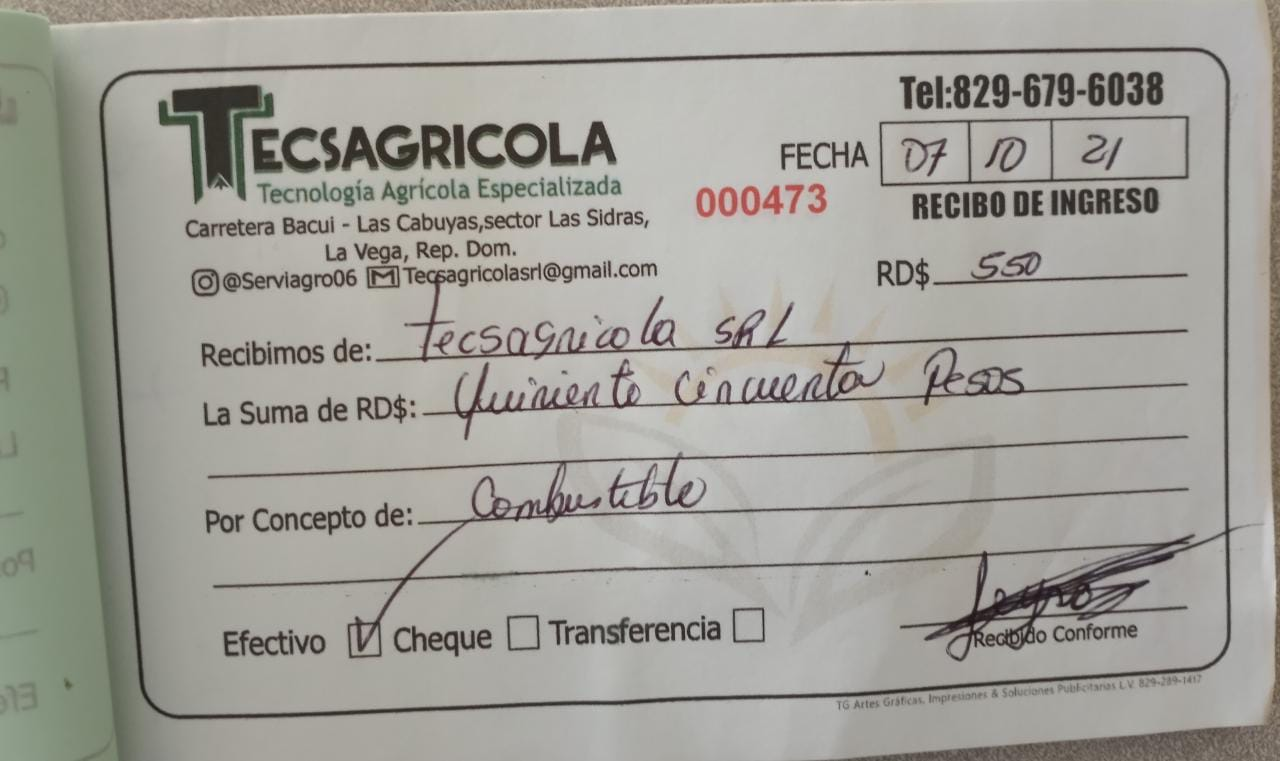 TECSAGRICOLA
Tecnología Agrícola Especializada
Carretera Bacui - Las Cabuyas,sector Las Sidras,
La Vega, Rep. Dom.
@Serviagro06 Tecsagricolasrl@gmail.com
Tel:829-679-6038
FECHA 07 10 21
000473
RECIBO DE INGRESO
RD$ 550
Recibimos de: Tecsagricola SRL
La Suma de RD$: Quiniento Cincuenta Pesos
Por Concepto de: Combustible
Efectivo Cheque Transferencia
Recibido Conforme
TG Artes Gráficas, Impresiones & Soluciones Publicitarias L.V. 829-289-1417